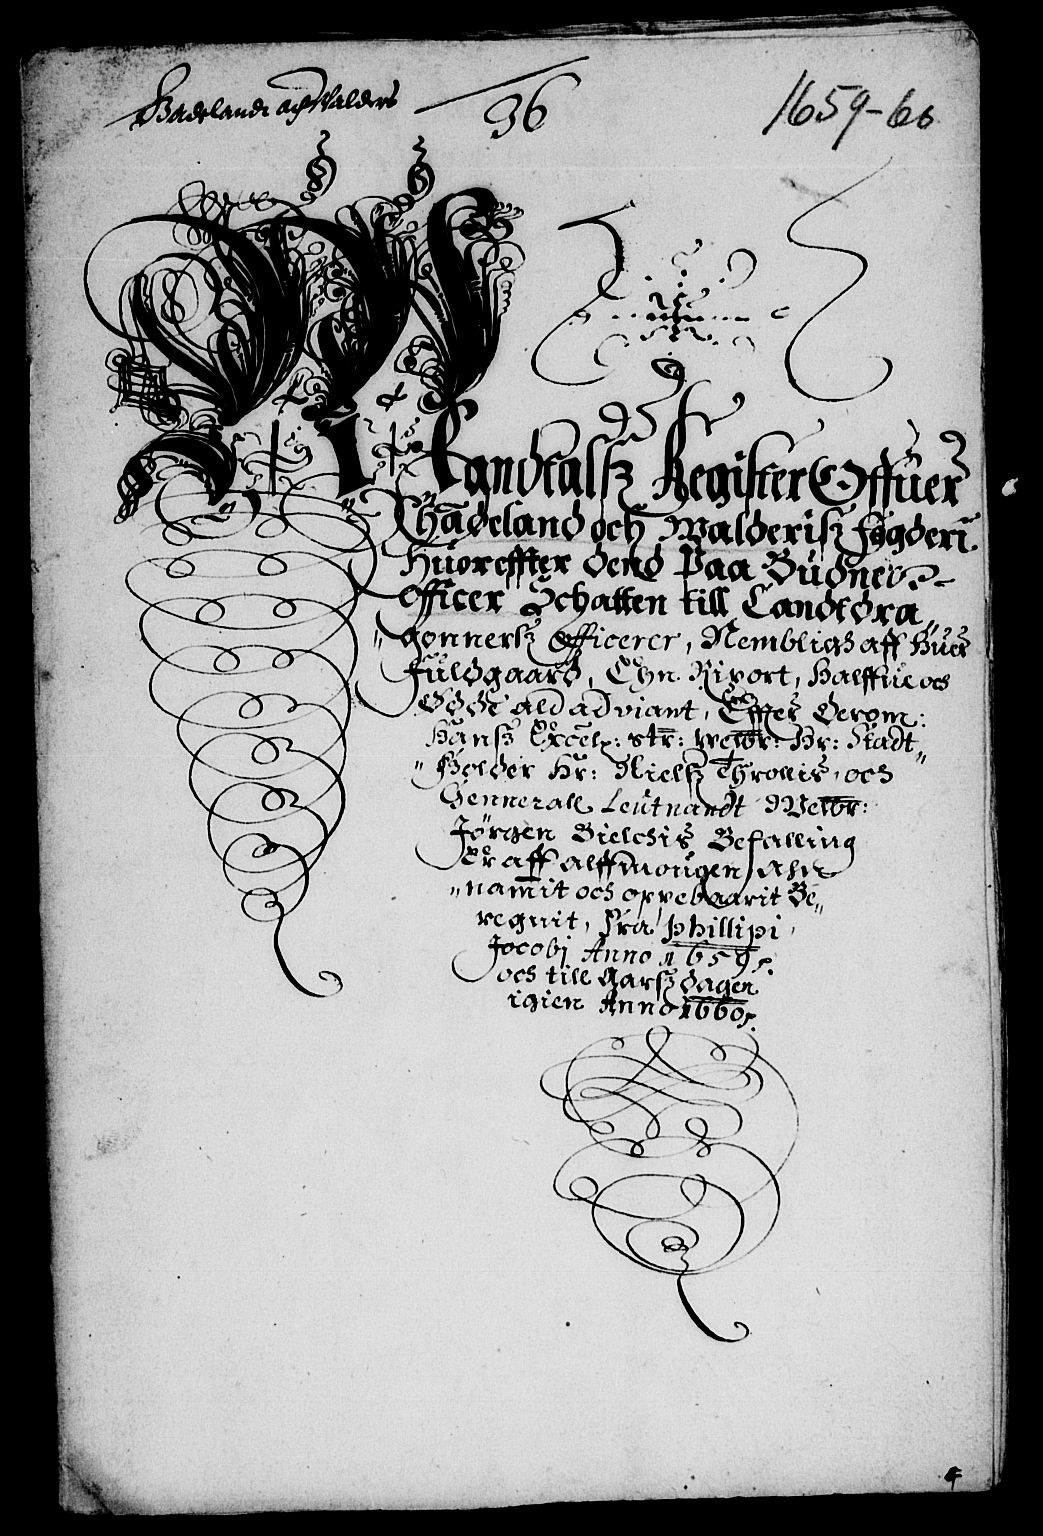 Hadelandt och Walders
36
1659-60
Mandtalsz Register Offuer
Hadeland och Walderisz fogderi
Huoreffter dend Paa Budnes
officer Schatten till Landtdra„
„gonnersz officerer, Nembligh aff huer
fuldgaard, En Rixort, halffue och
Øde ald adviant, Effter derom:
Hansz Excel: str: welbr: Hr: Stadt„
„Holder Hr: Nielsz Throllis, och
Gennerall Leutnandt Welbr:
Jørgen Bielchis Befalling
Er aff alffmougen ahn
„nammit och oppebaarit Be„
regnit, fra Phillipi
Jocobj Anno 1659.
och till Aarsz dagen
igien Anno 1660.
4